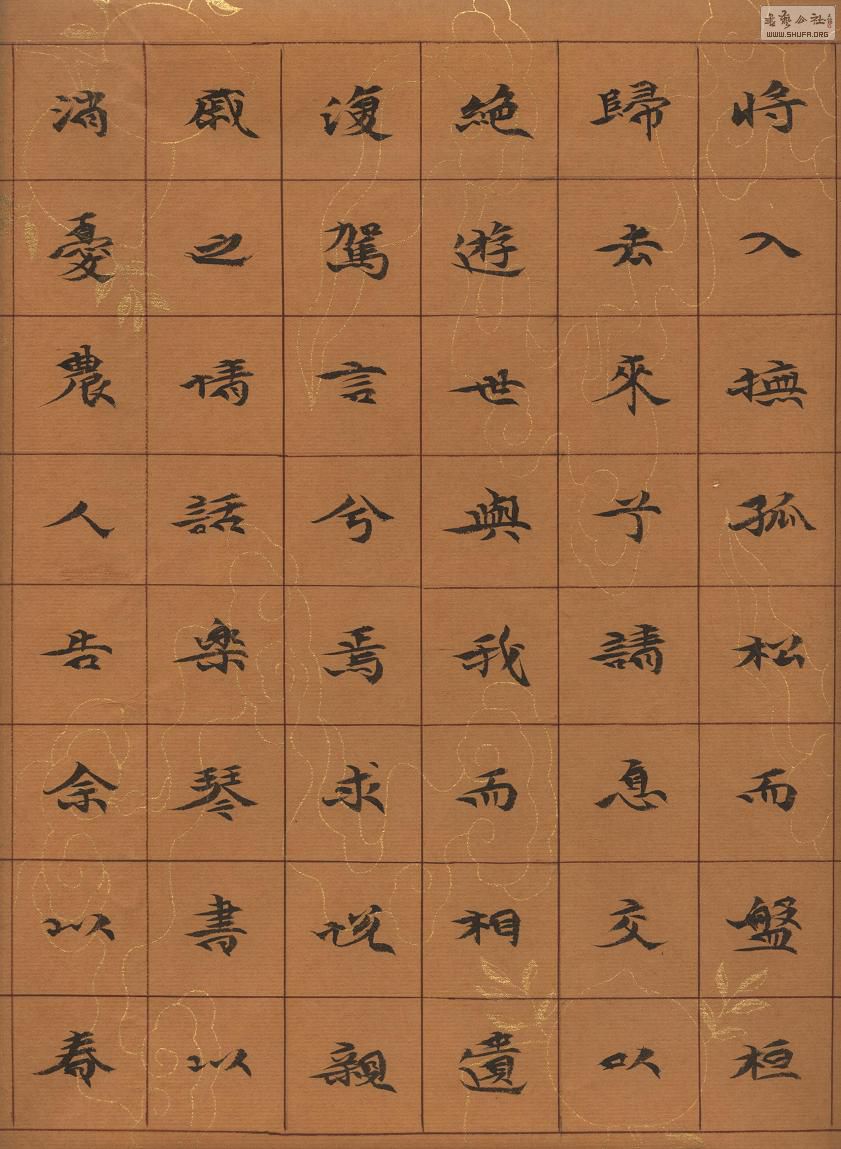 将入撫孤松而盤桓
歸去來兮請息交以
絕遊世與我而相遺
復駕言兮焉求悦親
戚之情話樂琴書以
消憂農人告余以春
書藝公社
WWW.SHUFA.ORG